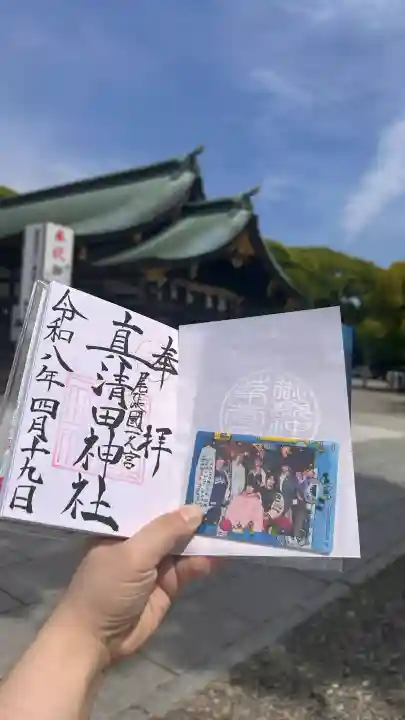 奉拝
尾張國一之宮
真清田神社
令和八年四月十九日
奉祝